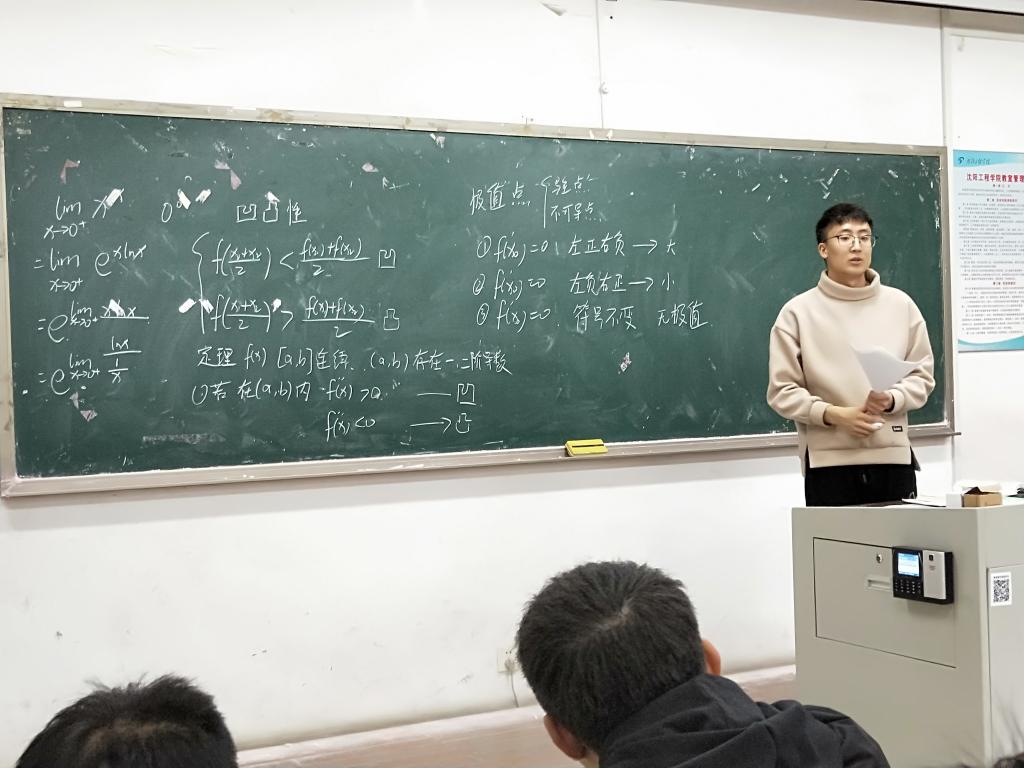 lim x^x 0^0
x→0⁺
= lim e^{xlnx}
x→0⁺
= e^{lim x→0⁺ xlnx}
= e^{lim x→0⁺ lnx/(1/x)}
凹凸性
f((x₁+x₂)/2) < (f(x₁)+f(x₂))/2 凹
f((x₁+x₂)/2) > (f(x₁)+f(x₂))/2 凸
定理 f(x) [a,b]连续、(a,b)存在一、二阶导数
①若在(a,b)内 f''(x)>0 — 凹
f''(x)<0 → 凸
极值点 { 驻点
不可导点
① f'(x₀)=0 左正右负 → 大
② f'(x₀)=0 左负右正 → 小
③ f'(x₀)=0 符号不变 无极值
沈阳工程学院教室管理